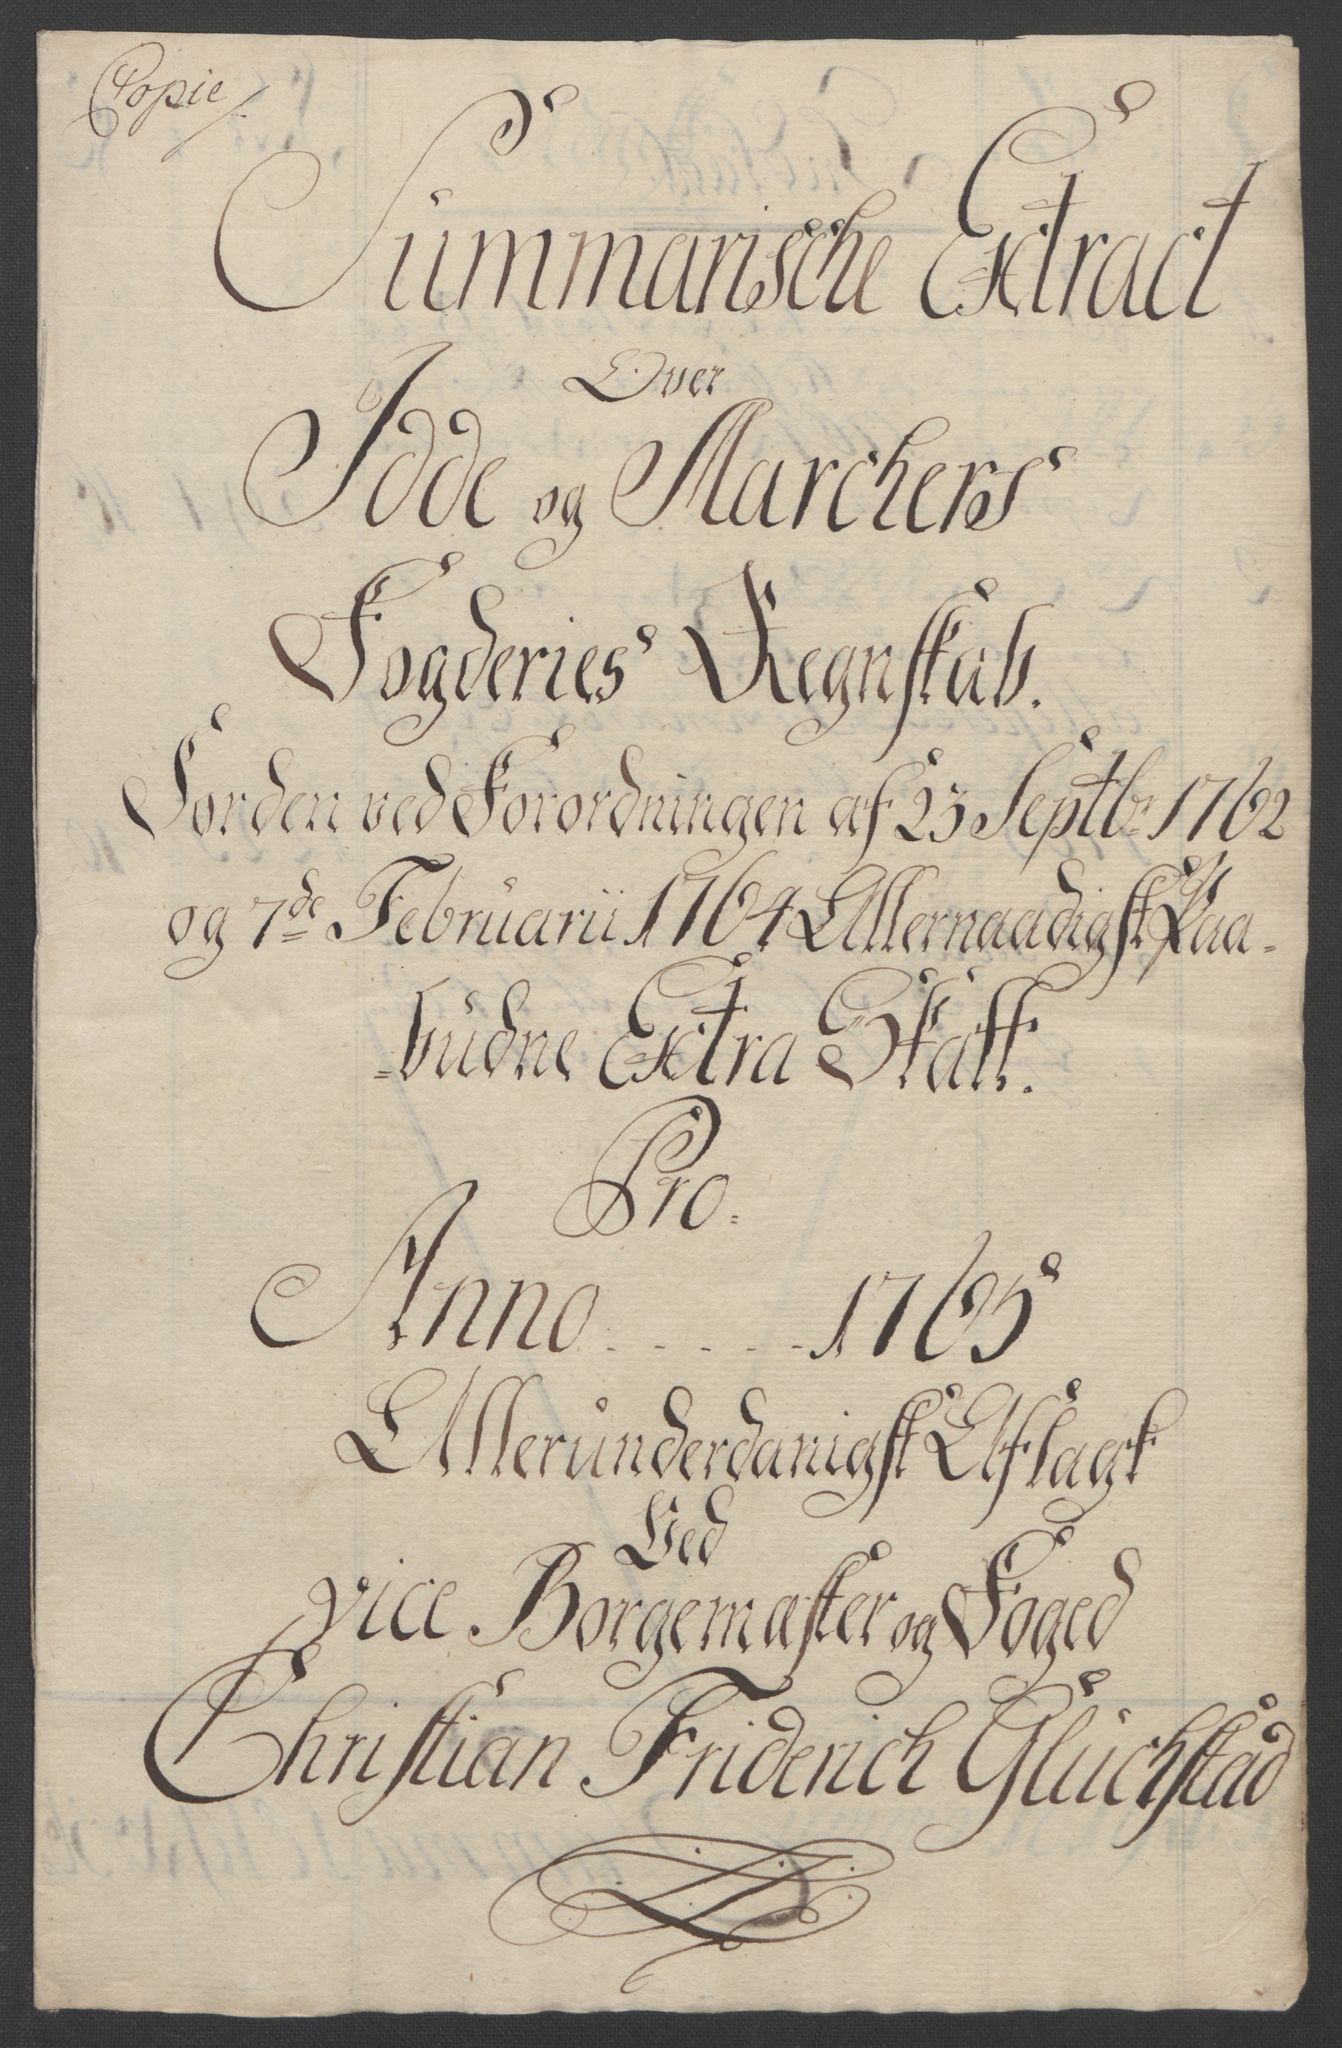 Copie/.
Summarische Extract
Over
Idde og Marchers
Fogderies Regnskab.
For den ved Forordningen af 23 Septbr: 1762
og 7de Februarii 1764 Allernaadigst Paa-
-budne Extra Skatt.
Pro.
Anno ..... 1765
Allerunderdanigst Aflagt
Ved
vice Borgemæster og Foged
Christian Friderich Gluchstad